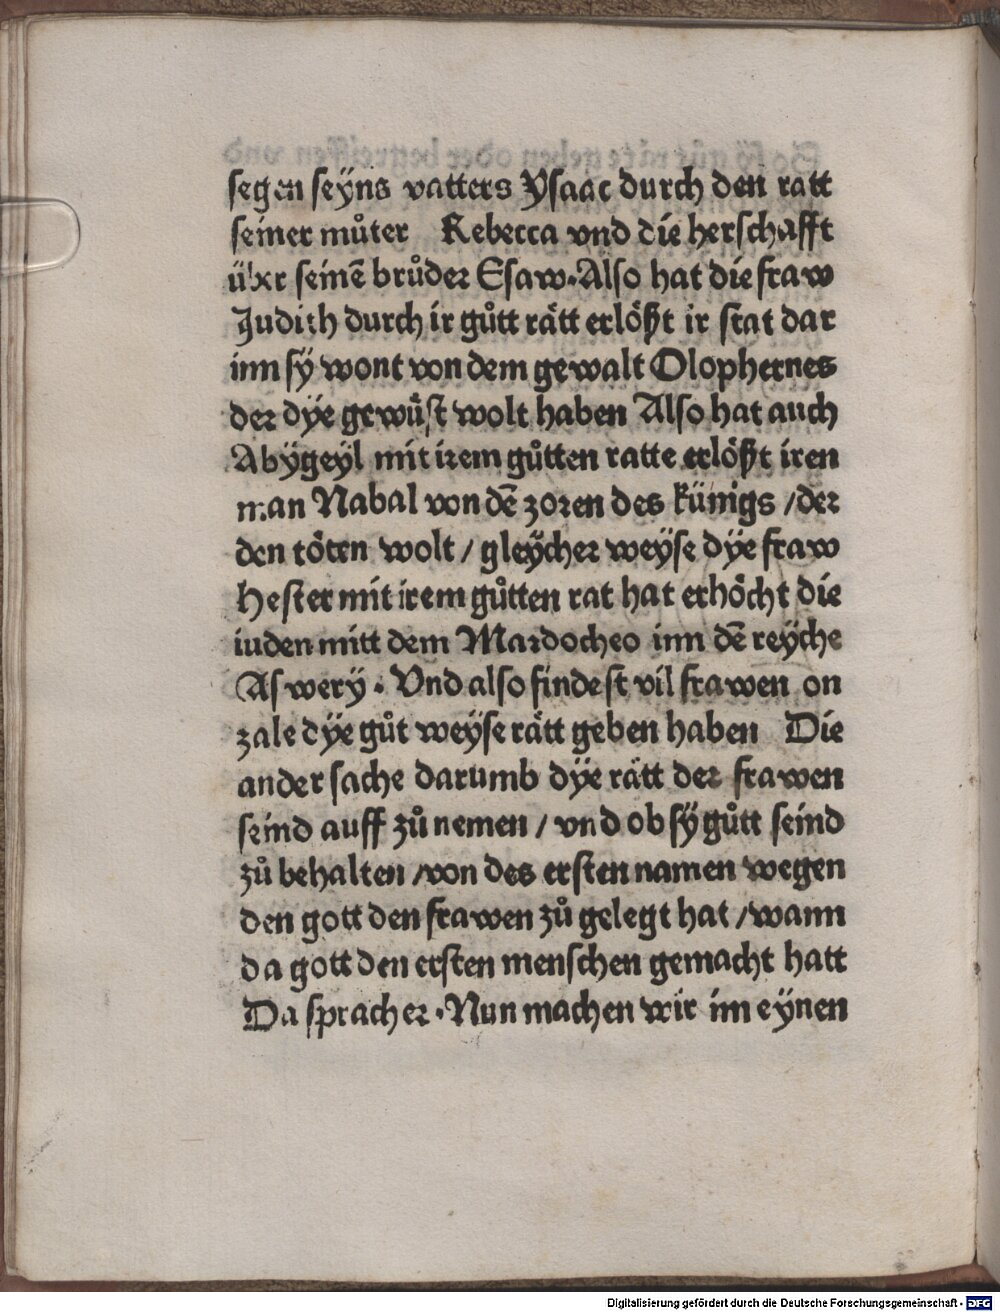 segen seÿns vatters Ysaac durch den ratt
seiner můter Rebecca vnd die herschafft
über seinē brůder Esaw·Also hat die fraw
Judith durch ir gůtt rätt erlößt ir stat dar
inn sÿ wont von dem gewalt Olophernes
der dÿe gewüst wolt haben Also hat auch
Abÿgeÿl mit irem gůtten ratte erlößt iren
man Nabal von dē zoren des künigs /der
den töten wolt / gleÿcher weÿse dÿe fraw
Hester mit irem gůtten rat hat erhöcht die
iuden mitt dem Mardocheo inn dē reÿche
Aswerÿ · Vnd also findest vil frawen on
zale dÿe gůt weÿse rätt geben haben Die
ander sache darumb dÿe rätt der frawen
seind auff zů nemen / vnd ob sÿ gůtt seind
zů behalten /von des ersten namen wegen
den gott den frawen zů gelegt hat /wann
da gott den ersten menschen gemacht hatt
Da sprach er·Nun machen wir im eÿnen
Digitalisierung gefördert durch die Deutsche Forschungsgemeinschaft - DFG